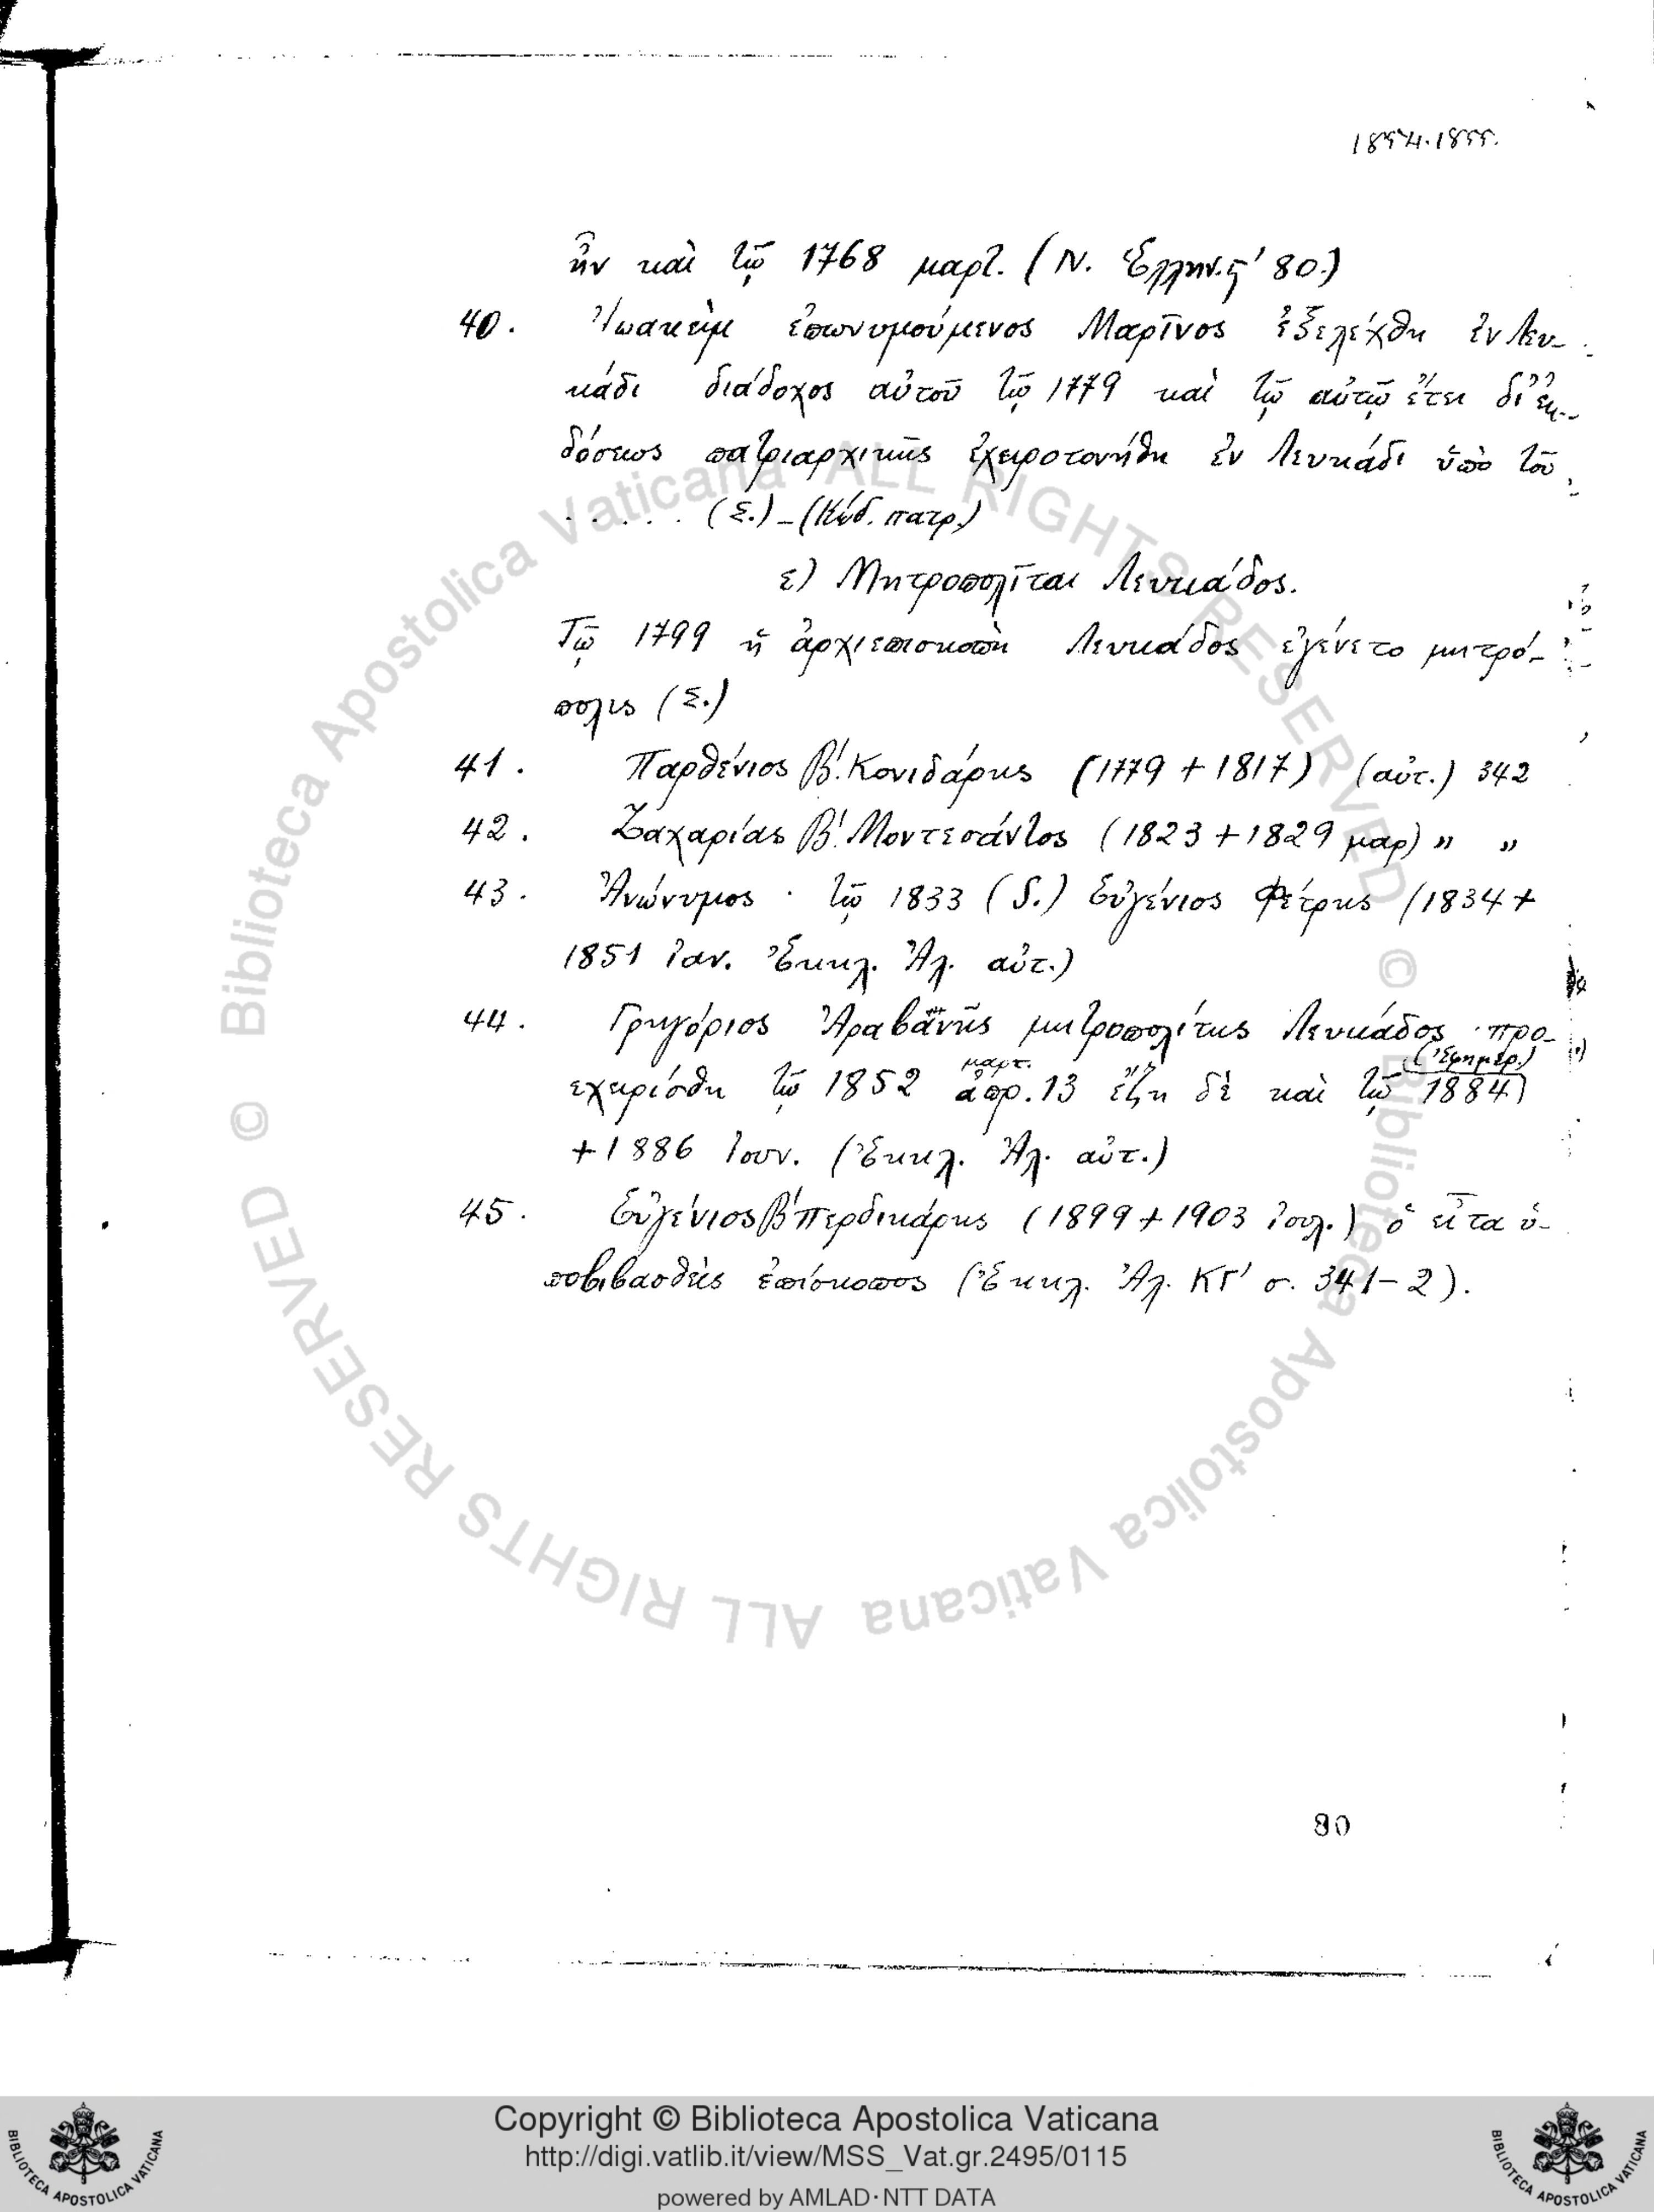 1854.1855.
ἦν καὶ τῷ 1768 μαρτ. (Ν. Ἑλλην. ϛ' 80.)
40. Ἰωακεὶμ ἐπωνυμούμενος Μαρῖνος ἐξελέχθη ἐν Λευ-
κάδι διάδοχος αὐτοῦ τῷ 1779 καὶ τῷ αὐτῷ ἔτει δι' ἐκ-
δόσεως πατριαρχικῆς ἐχειροτονήθη ἐν Λευκάδι ὑπὸ τοῦ
...... (Σ.) – (Κώδ. πατρ.)
ε) Μητροπολῖται Λευκάδος.
Τῷ 1799 ἡ ἀρχιεπισκοπὴ Λευκάδος ἐγένετο μητρό-
πολις (Σ.)
41. Παρθένιος Β'. Κονιδάρης (1779 + 1817) (αὐτ.) 342
42. Ζαχαρίας Β'. Μοντεσάντος (1823 + 1829 μαρ) " "
43. Ἀνώνυμος · τῷ 1833 (S.) Εὐγένιος Φέτρης (1834 +
1851 ἰαν. Ἐκκλ. Ἀλ. αὐτ.)
44. Γρηγόριος Ἀραβανῆς μητροπολίτης Λευκάδος · προ-
μαρτ. (Ἐφημερ.)
εχειρίσθη τῷ 1852 ἀπρ. 13 ἔζη δὲ καὶ τῷ 1884)
+ 1886 Ἰουν. (Ἐκκλ. Ἀλ. αὐτ.)
45. Εὐγένιος Β' Περδικάρης (1899 + 1903 ἰουλ.) ὁ εἶτα ὑ-
ποβιβασθεὶς ἐπίσκοπος (Ἐκκλ. Ἀλ. ΚΓ' σ. 341–2).
80
© Biblioteca Apostolica Vaticana ALL RIGHTS RESERVED © Biblioteca Apostolica Vaticana ALL RIGHTS RESERVED
BIBLIOTECA APOSTOLICA VATICANA
Copyright © Biblioteca Apostolica Vaticana
http://digi.vatlib.it/view/MSS_Vat.gr.2495/0115
powered by AMLAD·NTT DATA
BIBLIOTECA APOSTOLICA VATICANA